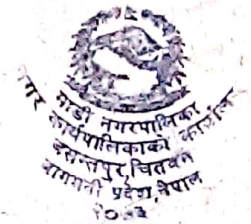 माडी नगरपालिका
नगर कार्यपालिकाको कार्यालय
बसन्तपुर, चितवन
बागमती प्रदेश, नेपाल